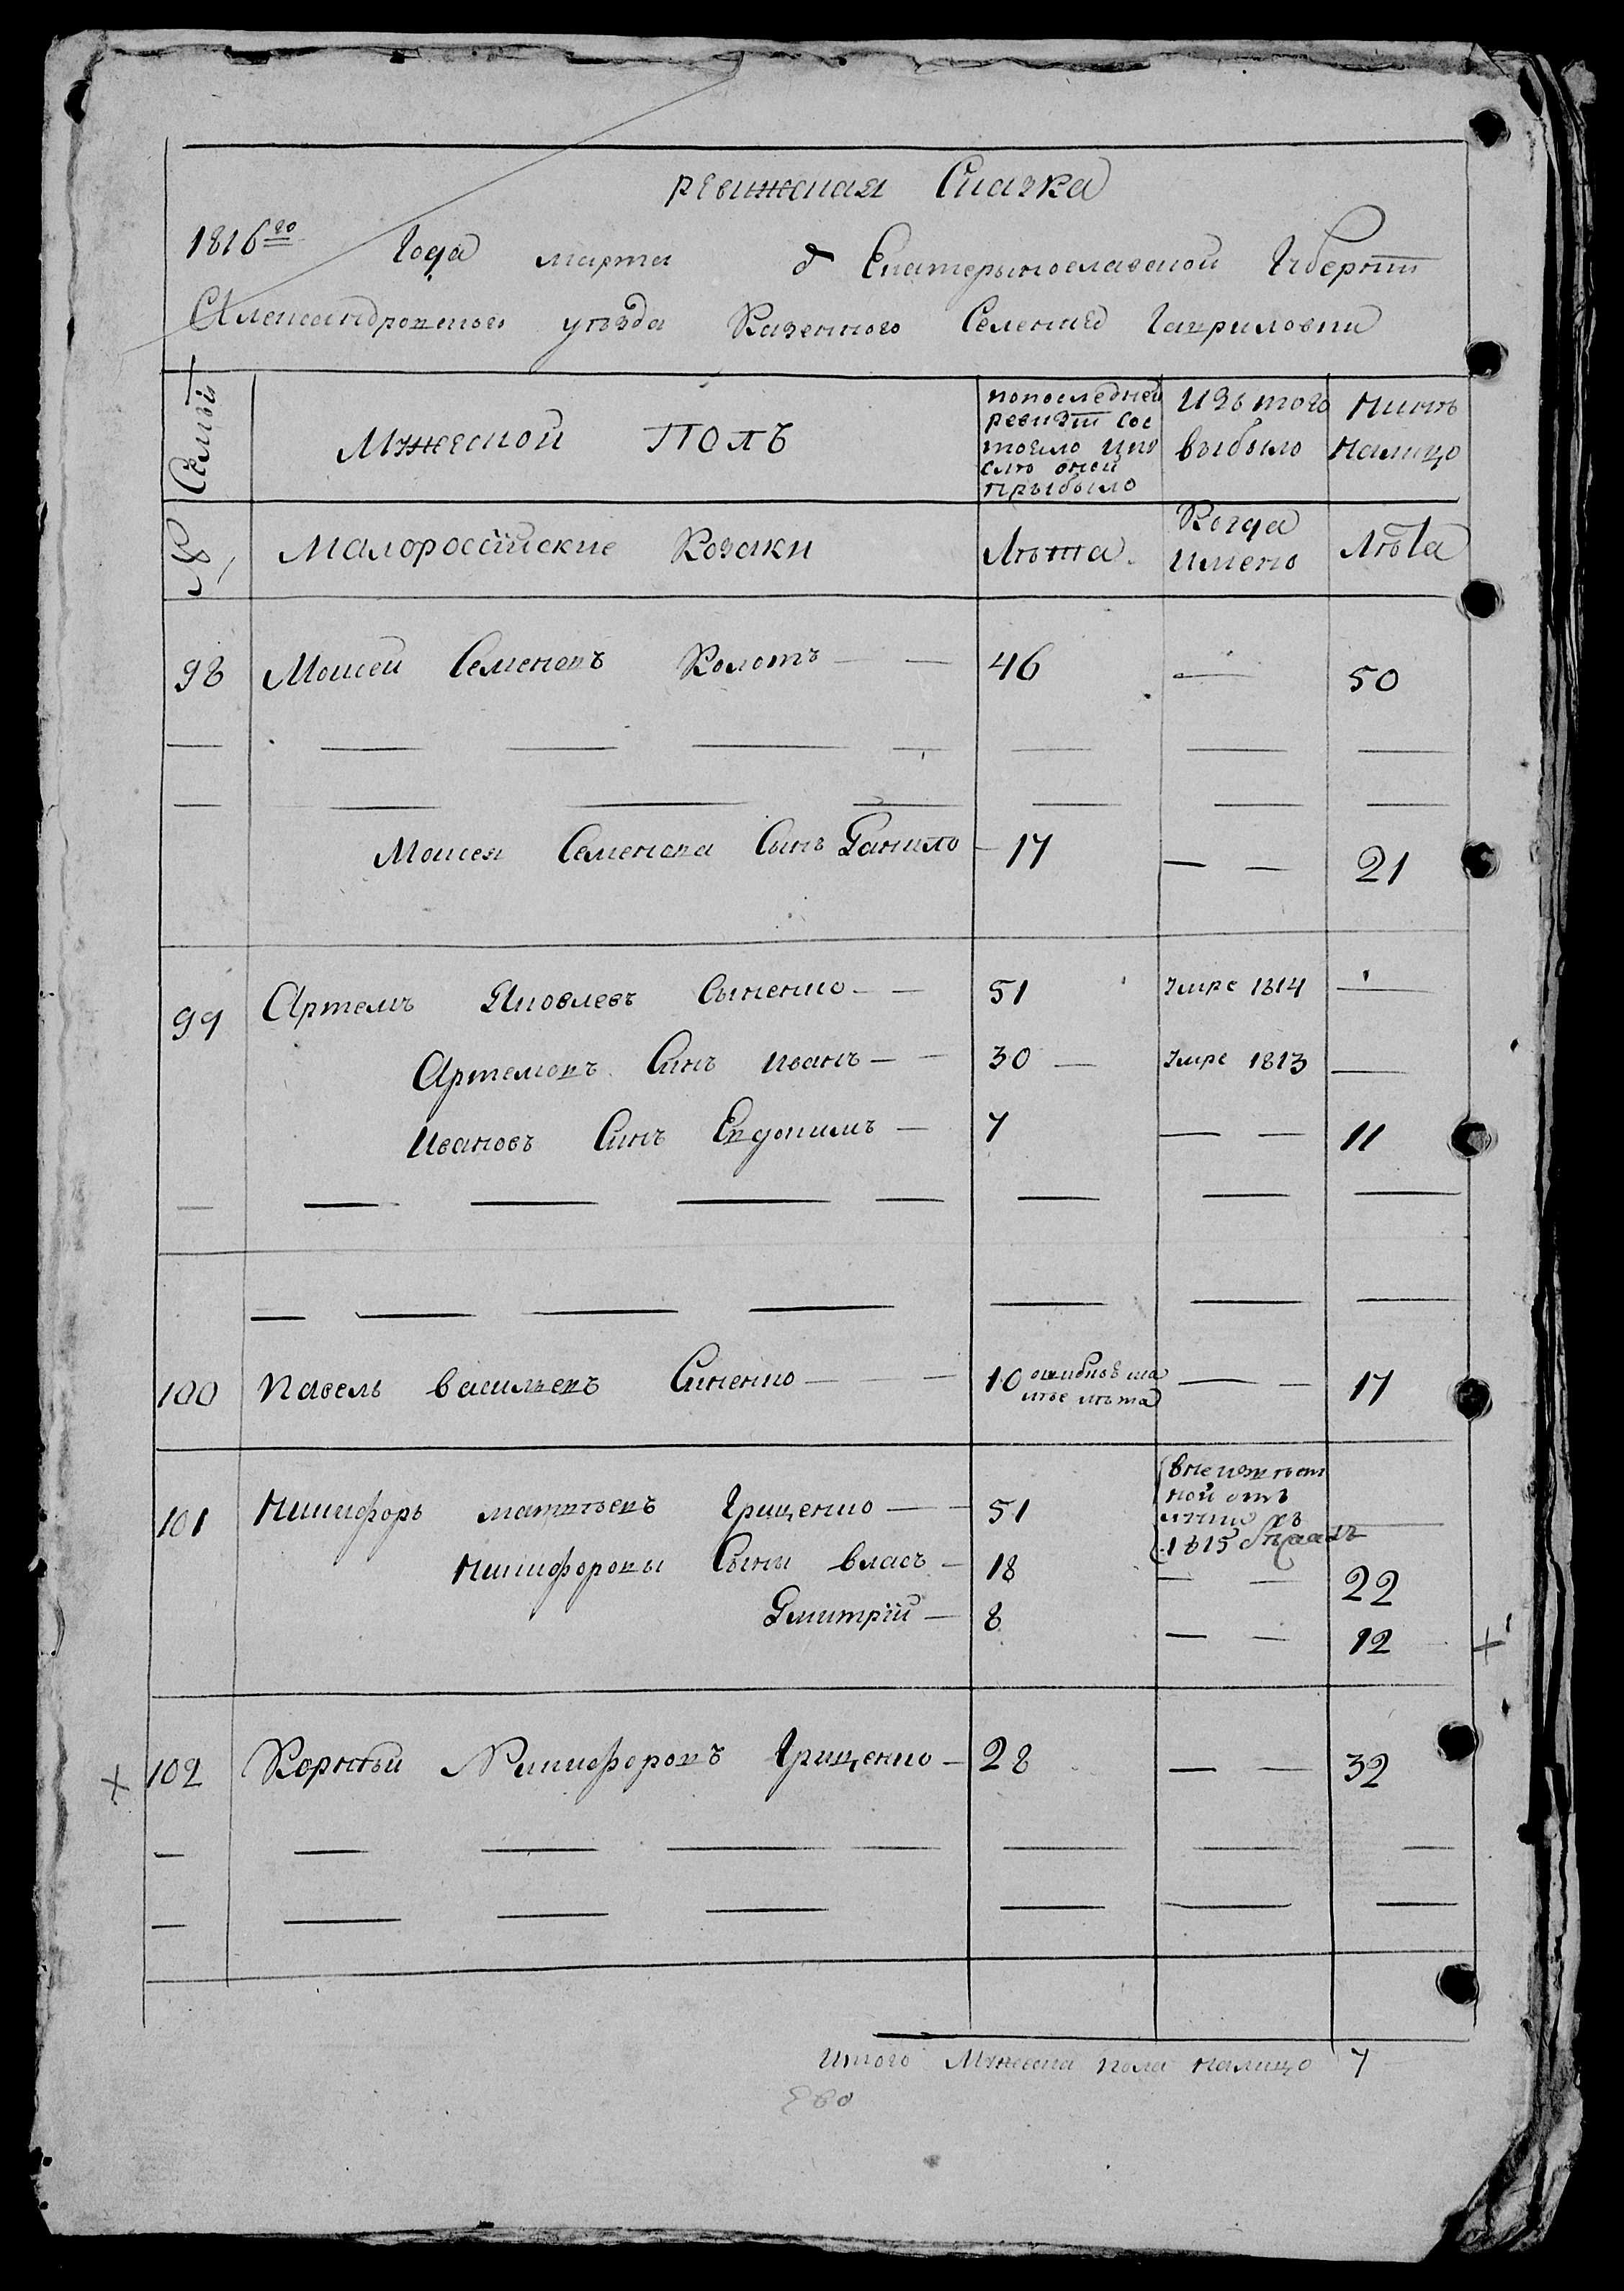 ревижская Сказка
1816го Года марта д Екатерынославской Губернии
Александровского уѣзда Казенного Селения Гавриловки
Семьи
Мужеской полъ
попоследней ревизии состояло ипослѣ оной прыбыло
Изъ того выбыло
Нинѣ налицо
№
Малороссійские Козаки
Лѣта
Когда имено
Лѣта
98 Моисей Семеновъ Колотъ — — 46 — 50
Моисея Семенова Сынъ Данило — 17 — — 21
99 Артемъ Яковлевъ Сыненко — — 51 Умре 1814 —
Артемовъ Синъ Иванъ — — 30 — Умре 1813 —
Ивановъ Синъ Евдокимъ — 7 — — 11
100 Павелъ васильевъ Синенко — — 10 — — 17
101 Никифоръ матвѣевъ Грищенко — — 51 1815 —
Никифоровы Сыны власъ — 18 — — 22
Дмитрій — 8 — — 12
102 Корнѣй Никифоровъ Грищенко — 28 — — 32
Итого Мужеска пола налицо 7